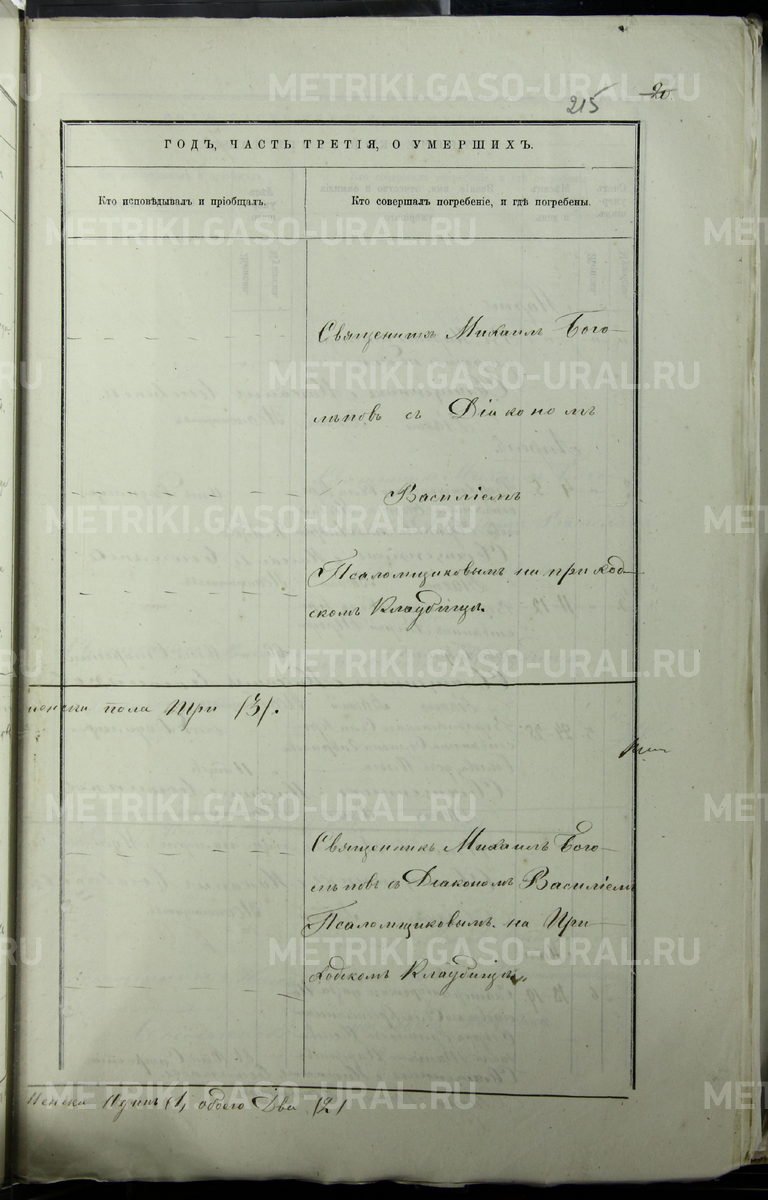 215
20
ГОДЪ, ЧАСТЬ ТРЕТІЯ, О УМЕРШИХЪ.
Кто исповѣдывалъ и пріобщалъ.
Кто совершалъ погребеніе, и гдѣ погребены.
Священникъ Михаилъ Бого-
лѣповъ съ Діакономъ
Василіемъ
Псаломщиковымъ на приход-
скомъ Кладбищѣ.
женска пола три /3/.
Священникъ Михаилъ Бого-
лѣповъ съ Діакономъ Василіемъ
Псаломщиковымъ на При-
ходскомъ Кладбищѣ
обоего Два /2/
METRIKI.GASO-URAL.RU